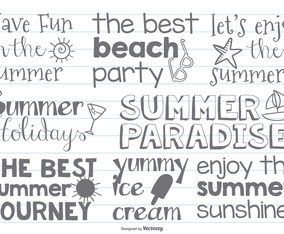 Have Fun
in the
summer
the best
beach
party
let's enjoy
the
summer
Summer
Holidays
SUMMER
PARADISE
THE BEST
summer
JOURNEY
yummy
ice
cream
enjoy the
summer
sunshine
Designed by Vecteezy